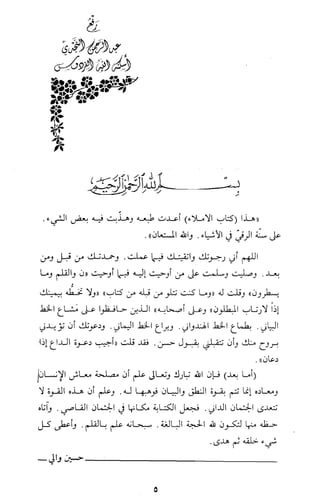 رفع
عبد الرحمن النجدي
أسكنه الله الفردوس
بسم الله الرحمن الرحيم
«هذا (كتاب الإملاء) أعدت طبعه وهذبت فيه بعض الشيء.
على سنّة الرقيّ في الأشياء. والله المستعان».
اللهم أني رجوتك واتقيتك فيما عملت. وحمدتك من قبل ومن
بعد. وصليت وسلمت على من أوحيت إليه فيما أوحيت «ن والقلم وما
يسطرون» وقلت له «وما كنت تتلو من قبله من كتاب» «ولا تخطّه بيمينك
إذاً لارتاب المبطلون» وعلى أصحابه «الذين حافظوا على مشاع الخط
البياني. بطماع الخط الهندواني. ويراع الخط اليماني. ودعوتك أن تؤيدني
بروح منك وأن تتقبلني بقبول حسن. فقد قلت «أجيب دعوة الداع إذا
دعان».
(أما بعد) فإن الله تبارك وتعالى علم أن مصلحة معاش الإنسان
ومعاده إنما تتم بقوة النطق والبيان فوهبها له. وعلم أن هذه القوة لا
تتعدى الجثمان الداني. فجعل الكتابة مكانها في الجثمان القاصي. وآتاه
حظه منها لتكون لله الحجة البالغة. سبحانه علم بالقلم. وأعطى كل
شيء خلقه ثم هدى.
حسين والي
٥